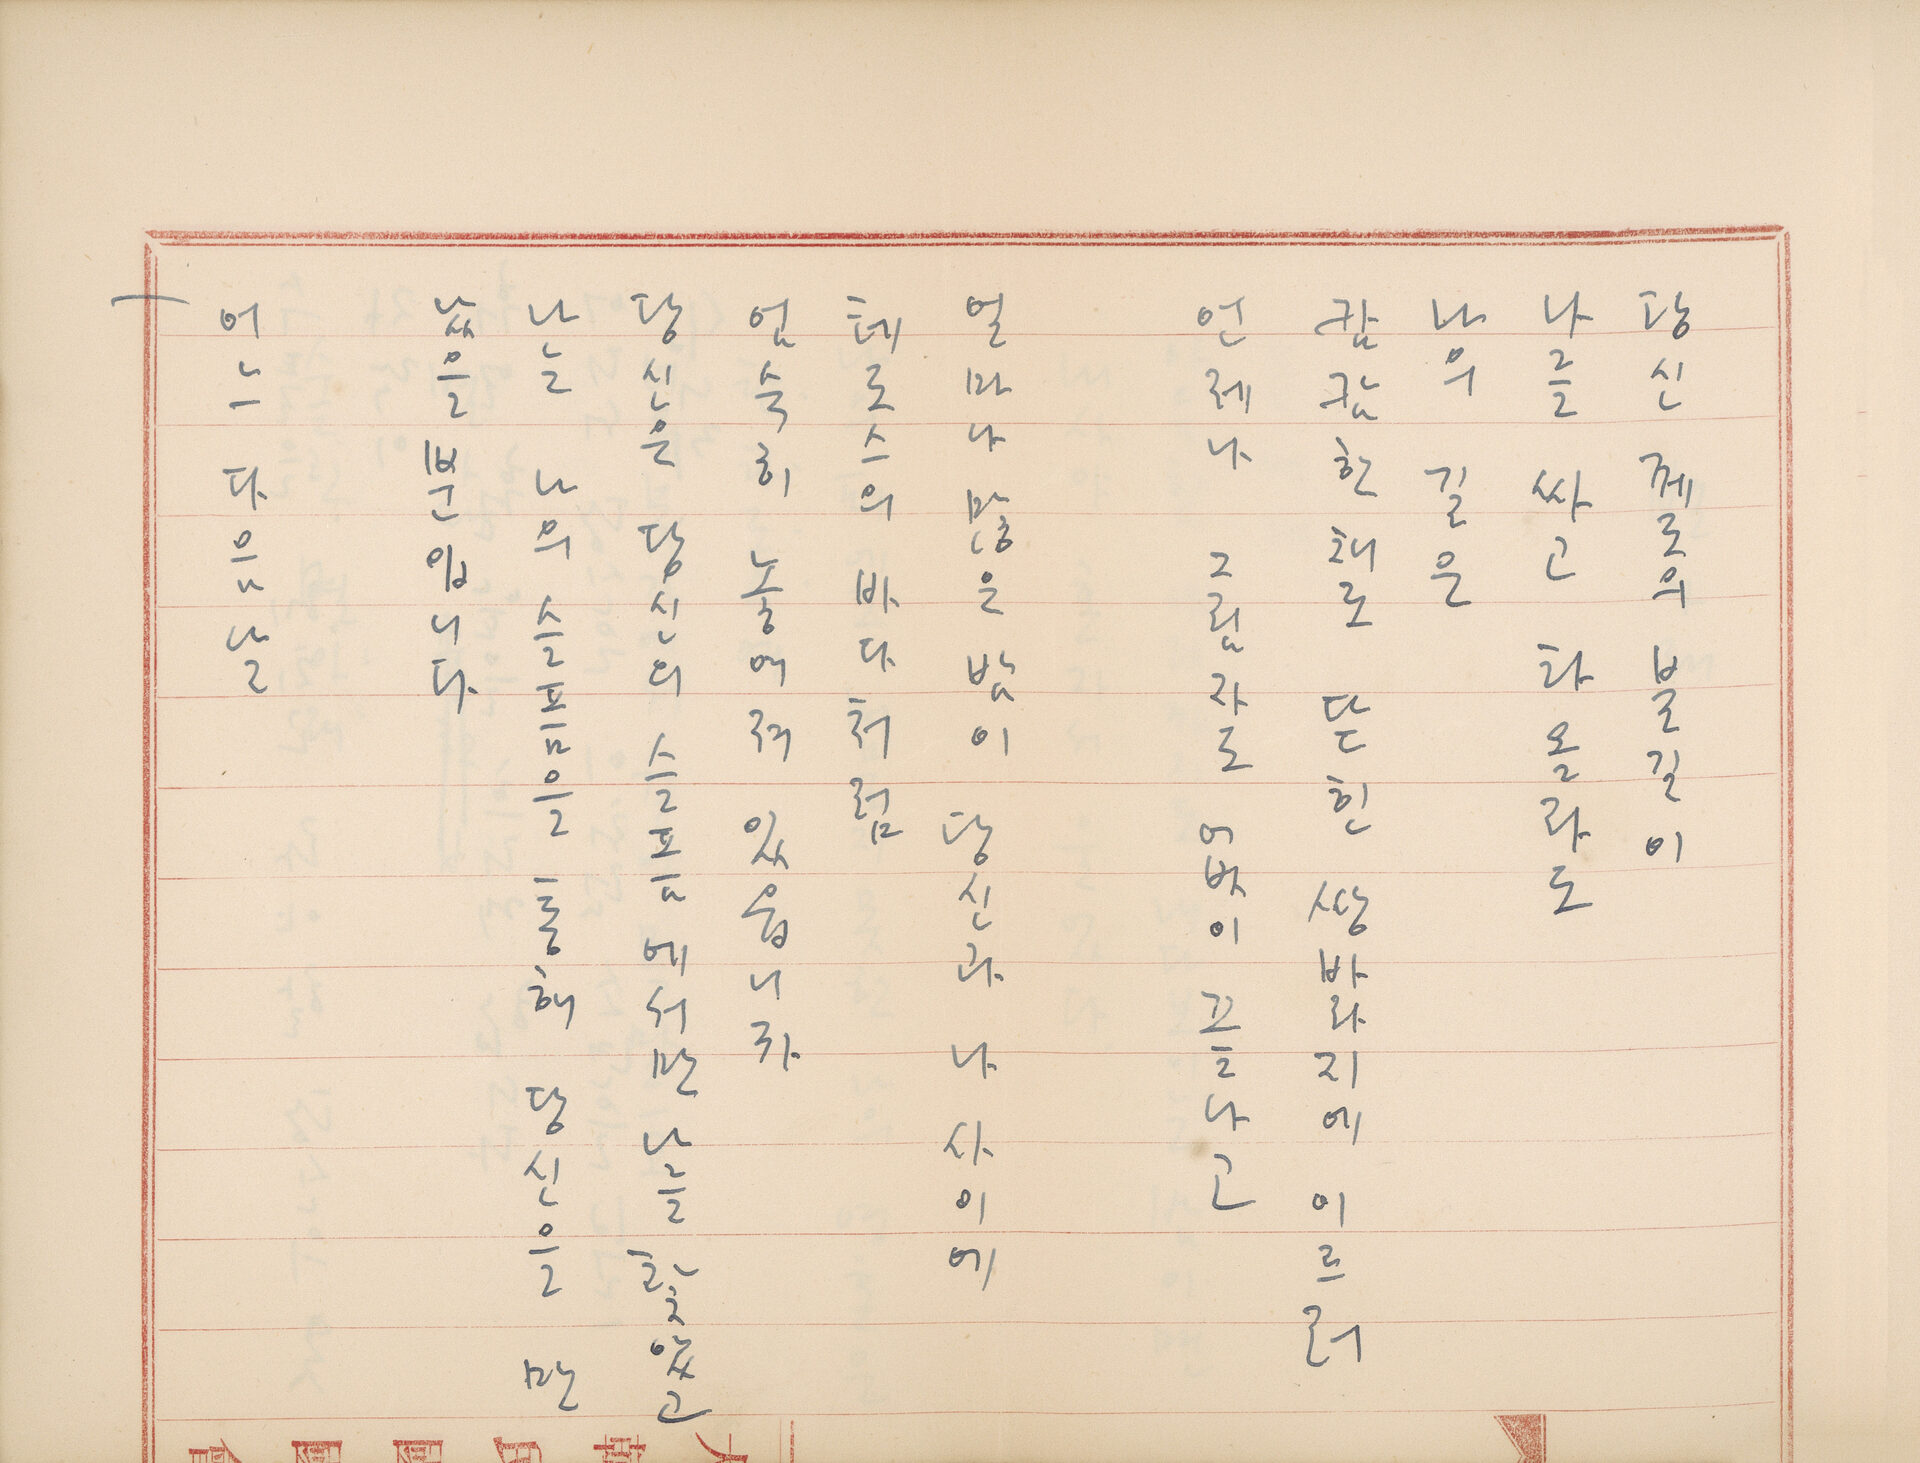 당신 쩨로의 불길이
나를 싸고 타올라도
나의 길은
캄캄한 채로 닫힌 쌍바라지에 이르러
언제나 그림자도 없이 끝나고
얼마나 많은 밤이 당신과 나 사이에
테로스의 바다처럼
엄숙히 놓여져 있읍니까
당신은 당신의 슬픔에서만 나를 찾았고
나는 나의 슬픔을 통해 당신을 만
났을 뿐입니다
어느 다음날